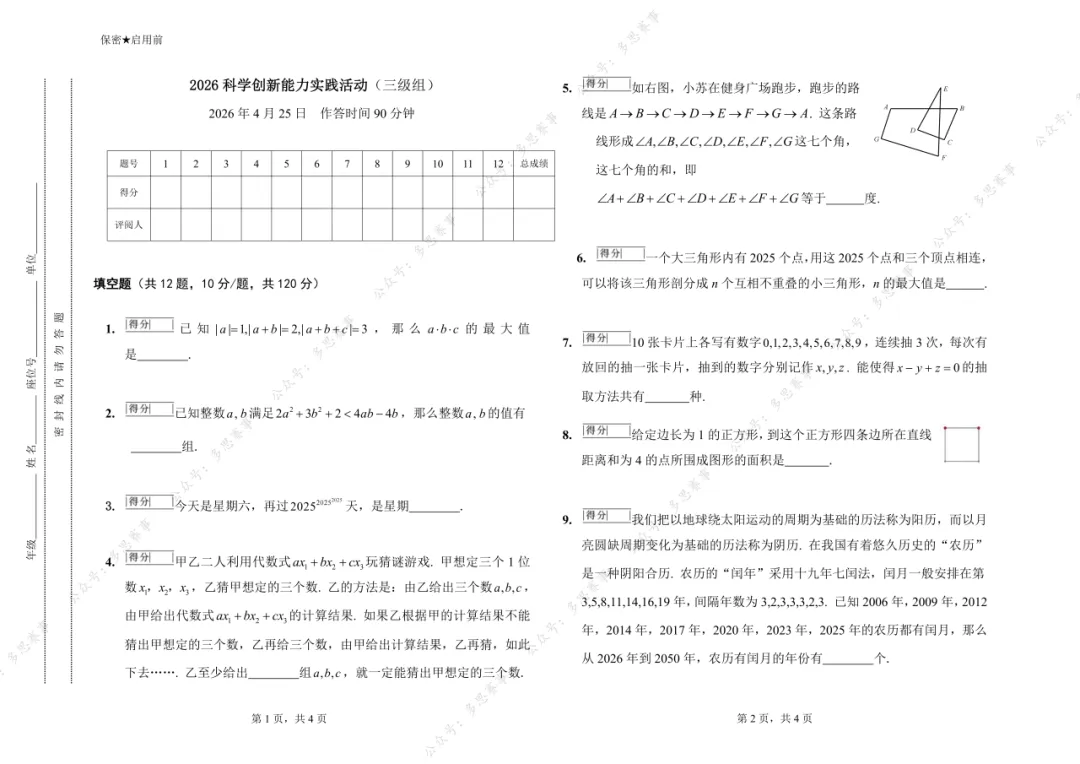 保密★启用前
2026 科学创新能力实践活动（三级组）
2026 年 4 月 25 日 作答时间 90 分钟
题号 1 2 3 4 5 6 7 8 9 10 11 12 总成绩
得分
评阅人
填空题（共 12 题，10 分/题，共 120 分）
1. 得分 已知 |a|=1,|a+b|=2,|a+b+c|=3 ，那么 a·b·c 的最大值
是________.
2. 得分 已知整数 a, b 满足 2a²+3b²+2<4ab−4b，那么整数 a, b 的值有
________组.
3. 得分 今天是星期六，再过 2025^2025^2025 天，是星期________.
4. 得分 甲乙二人利用代数式 ax₁+bx₂+cx₃ 玩猜谜游戏. 甲想定三个 1 位
数 x₁，x₂，x₃，乙猜甲想定的三个数. 乙的方法是：由乙给出三个数 a,b,c，
由甲给出代数式 ax₁+bx₂+cx₃ 的计算结果. 如果乙根据甲的计算结果不能
猜出甲想定的三个数，乙再给三个数，由甲给出计算结果，乙再猜，如此
下去……. 乙至少给出________组 a,b,c，就一定能猜出甲想定的三个数.
第 1 页，共 4 页
年级________ 姓名________ 座位号________ 单位________
密 封 线 内 请 勿 答 题
5. 得分 如右图，小苏在健身广场跑步，跑步的路
线是 A→B→C→D→E→F→G→A. 这条路
线形成∠A,∠B,∠C,∠D,∠E,∠F,∠G 这七个角，
这七个角的和，即
∠A+∠B+∠C+∠D+∠E+∠F+∠G 等于______度.
E
A
B
D
G
C
F
6. 得分 一个大三角形内有 2025 个点，用这 2025 个点和三个顶点相连，
可以将该三角形剖分成 n 个互相不重叠的小三角形，n 的最大值是______.
7. 得分 10 张卡片上各写有数字 0,1,2,3,4,5,6,7,8,9，连续抽 3 次，每次有
放回的抽一张卡片，抽到的数字分别记作 x, y, z . 能使得 x−y+z=0 的抽
取方法共有_______种.
8. 得分 给定边长为 1 的正方形，到这个正方形四条边所在直线
距离和为 4 的点所围成图形的面积是_______.
9. 得分 我们把以地球绕太阳运动的周期为基础的历法称为阳历，而以月
亮圆缺周期变化为基础的历法称为阴历. 在我国有着悠久历史的“农历”
是一种阴阳合历. 农历的“闰年”采用十九年七闰法，闰月一般安排在第
3,5,8,11,14,16,19 年，间隔年数为 3,2,3,3,3,2,3. 已知 2006 年，2009 年，2012
年，2014 年，2017 年，2020 年，2023 年，2025 年的农历都有闰月，那么
从 2026 年到 2050 年，农历有闰月的年份有________个.
第 2 页，共 4 页
公众号：多思赛事